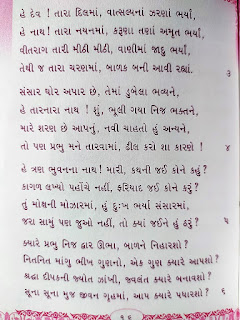 હે દેવ ! તારા દિલમાં, વાત્સલ્યનાં ઝરણાં ભર્યાં,
હે નાથ! તારા નયનમાં, કરૂણા તણાં અમૃત ભર્યાં,
વીતરાગ તારી મીઠી મીઠી, વાણીમાં જાદુ ભર્યાં,
તેથી જ તારા ચરણમાં, બાળક બની આવી રહ્યાં. ૩
સંસાર ઘોર અપાર છે, તેમાં ડુબેલા ભવ્યને,
હે તારનારા નાથ ! શું, ભુલી ગયા નિજ ભક્તને,
મારે શરણ છે આપનું, નવી ચાહતો હું અન્યને,
તો પણ પ્રભુ મને તારવામાં, ઢીલ કરો શા કારણે ! ૪
હે ત્રણ ભુવનના નાથ ! મારી, કથની જઈ કોને કહું ?
કાગળ લખ્યો પહોંચે નહીં, ફરિયાદ જઈ કોને કરું ?
તું મોક્ષની મોઝારમાં, હું દુઃખ ભર્યા સંસારમાં,
જરા સામું પણ જુઓ નહીં, તો ક્યાં જઈને હું ઠરું ? ૫
ક્યારે પ્રભુ નિજ દ્વાર ઊભા, બાળને નિહારશો ?
નિતનિત માંગુ ભીખ ગુણનો, એક ગુણ ક્યારે આપશો ?
શ્રદ્ધા દીપકની જ્યોત ઝાંખી, જ્વલંત ક્યારે બનાવશો ?
સૂના સૂના મુજ જીવન ગૃહમાં, આપ ક્યારે પધારશો ? ૬